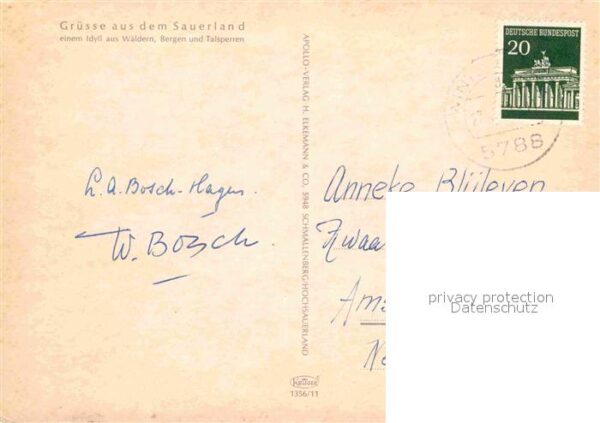 Grüsse aus dem Sauerland
einem Idyll aus Wäldern, Bergen und Talsperren
DEUTSCHE BUNDESPOST
20
5788
APOLLO-VERLAG H. ELKEMANN & CO., 5948 SCHMALLENBERG/HOCHSAUERLAND
L. A. Bosch-Hagen.
W. Bosch.
Anneke Blijleven
Zwaa
Ams
Ne
privacy protection
Datenschutz
1356/11